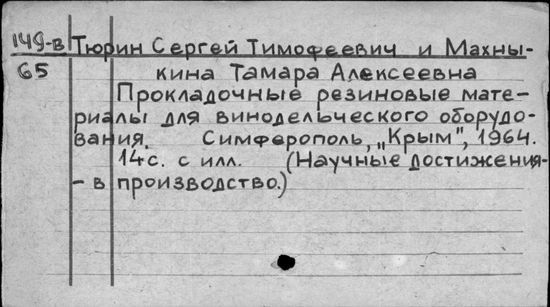 149-в Тюрин Сергей Тимофеевич и Махны-
65 кина Тамара Алексеевна
Прокладочные резиновые мате-
риалы для винодельческого оборудо-
вания. Симферополь, „Крым", 1964.
14с. с илл. (Научные достижения-
- в производство.)